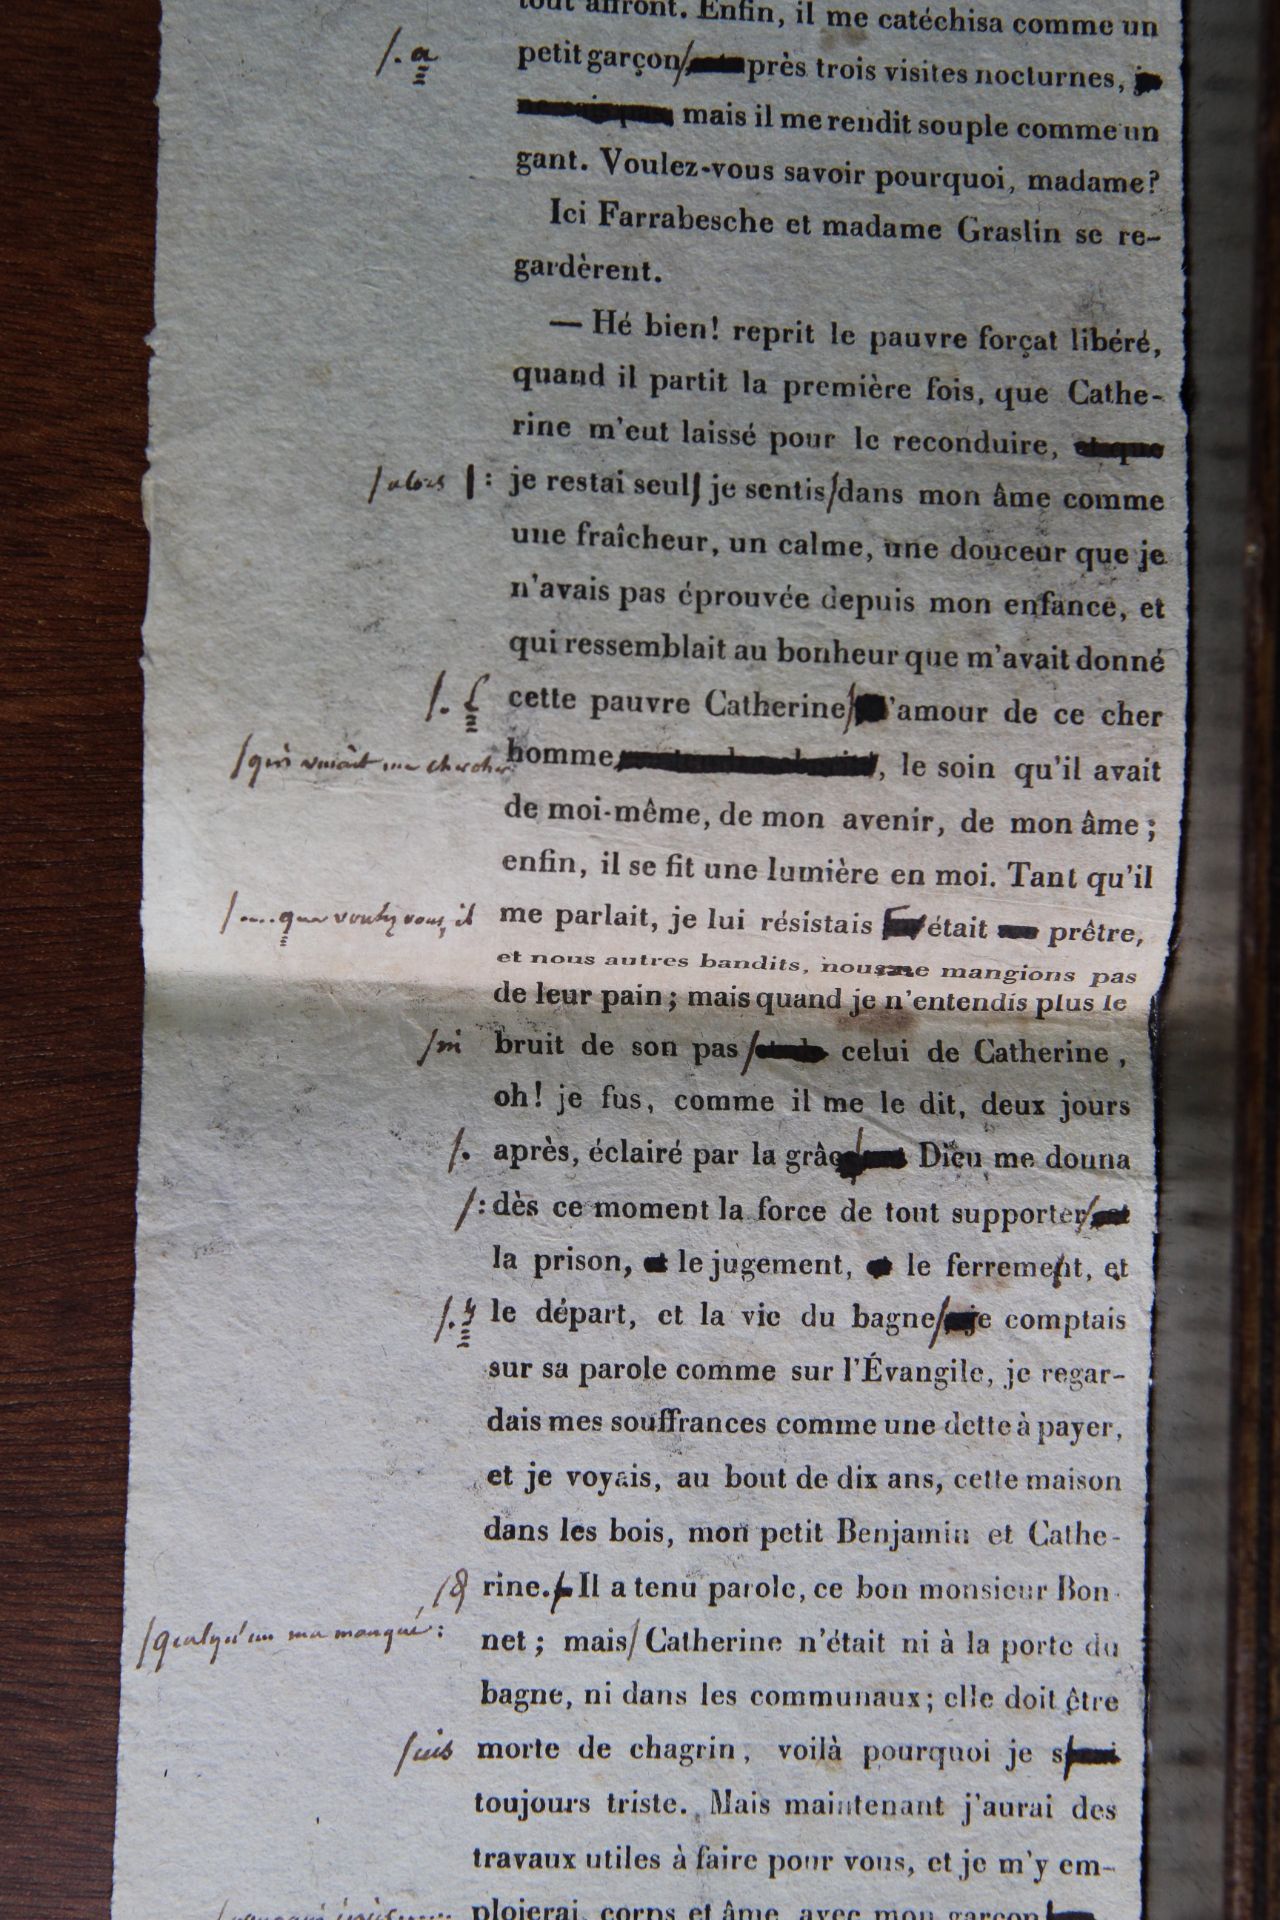 tout affront. Enfin, il me catéchisa comme un
/. a petit garçon/ près trois visites nocturnes, je
mais il me rendit souple comme un
gant. Voulez-vous savoir pourquoi, madame?
Ici Farrabesche et madame Graslin se re-
gardèrent.
— Hé bien! reprit le pauvre forçat libéré,
quand il partit la première fois, que Cathe-
rine m'eut laissé pour le reconduire, et que
/alors |: je restai seul/ je sentis/dans mon âme comme
une fraîcheur, un calme, une douceur que je
n'avais pas éprouvée depuis mon enfance, et
qui ressemblait au bonheur que m'avait donné
/. L cette pauvre Catherine/ 'amour de ce cher
/qui venait me chercher homme, le soin qu'il avait
de moi-même, de mon avenir, de mon âme ;
enfin, il se fit une lumière en moi. Tant qu'il
/....que voulez vous, il me parlait, je lui résistais était prêtre,
et nous autres bandits, nous ne mangions pas
de leur pain ; mais quand je n'entendis plus le
/ni bruit de son pas/ celui de Catherine,
oh! je fus, comme il me le dit, deux jours
/. après, éclairé par la grâce/ Dieu me donna
/: dès ce moment la force de tout supporter/ et
la prison, et le jugement, et le ferrement, et
/. J le départ, et la vie du bagne/ je comptais
sur sa parole comme sur l'Évangile, je regar-
dais mes souffrances comme une dette à payer,
et je voyais, au bout de dix ans, cette maison
dans les bois, mon petit Benjamin et Cathe-
rine. Il a tenu parole, ce bon monsieur Bon-
/quelqu'un m'a manqué : net ; mais/ Catherine n'était ni à la porte du
bagne, ni dans les communaux ; elle doit être
/uis morte de chagrin, voilà pourquoi je s/
toujours triste. Mais maintenant j'aurai des
travaux utiles à faire pour vous, et je m'y em-
ploierai corps et âme, avec mon garçon